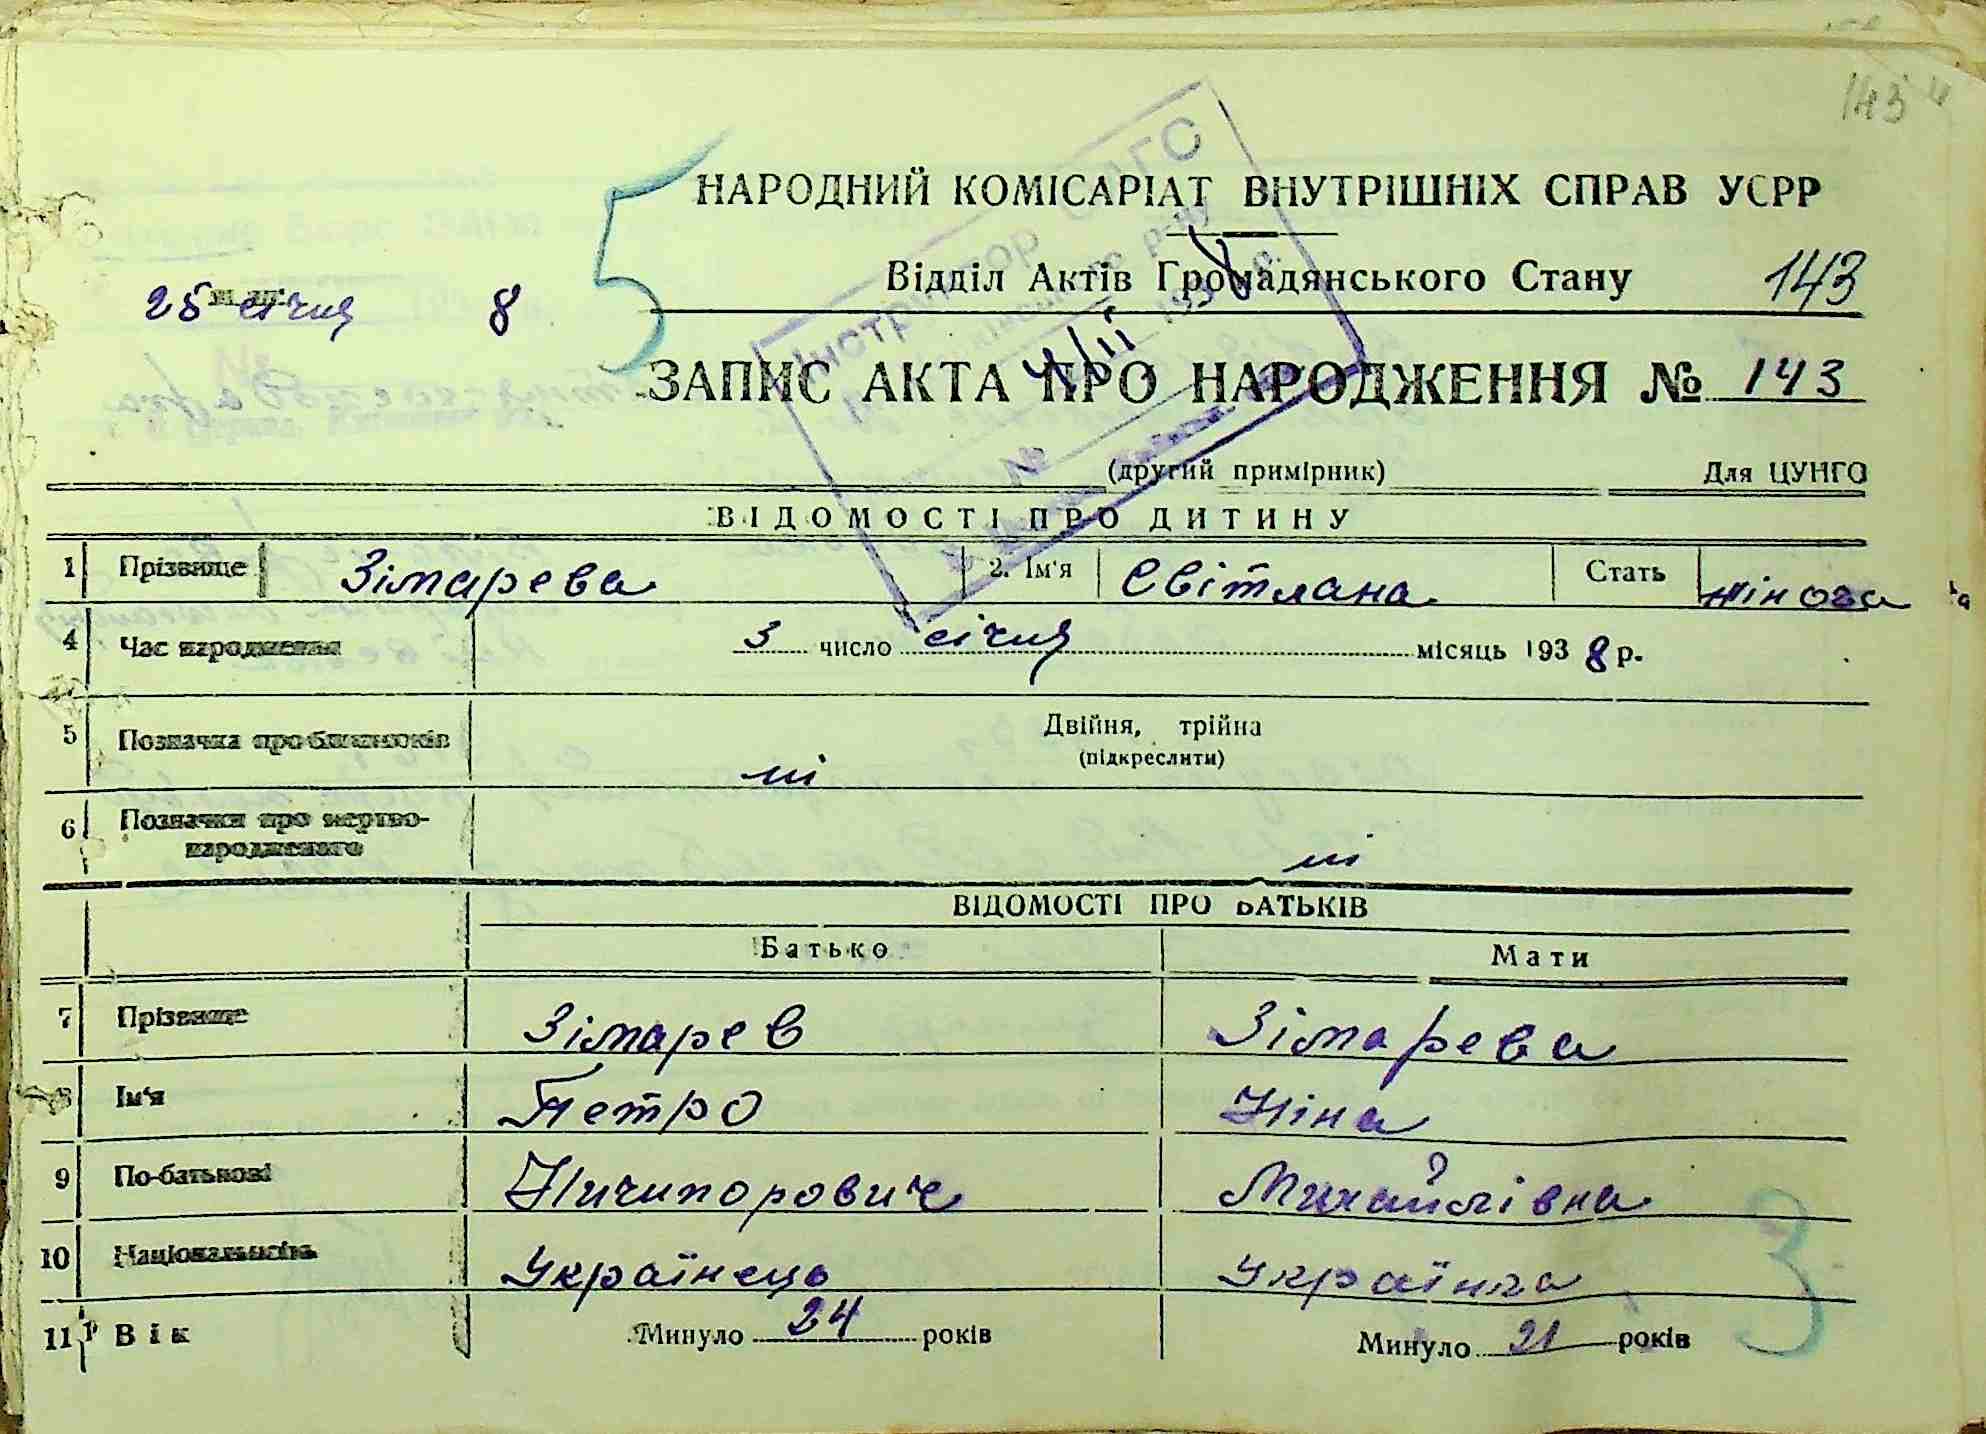 143
НАРОДНИЙ КОМІСАРІАТ ВНУТРІШНІХ СПРАВ УСРР
25 січня 8
5
Відділ Актів Громадянського Стану 143
ЗАПИС АКТА ПРО НАРОДЖЕННЯ № 143
Інструктор
4/II
№
(другий примірник) Для ЦУНГО
ВІДОМОСТІ ПРО ДИТИНУ
1 Прізвище Зімарева 2. Ім'я Світлана Стать жіноча
4 Час народження 3 число січня місяць 1938 р.
5 Позначка про близнюків Двійня, трійна
(підкреслити)
ні
6 Позначки про мертво-
народженого ні
ВІДОМОСТІ ПРО БАТЬКІВ
Батько Мати
7 Прізвище Зімарев Зімарева
8 Ім'я Петро Ніна
9 По-батькові Ничипорович Михайлівна
10 Національність Українець Українка
3
11 Вік Минуло 24 років Минуло 21 років